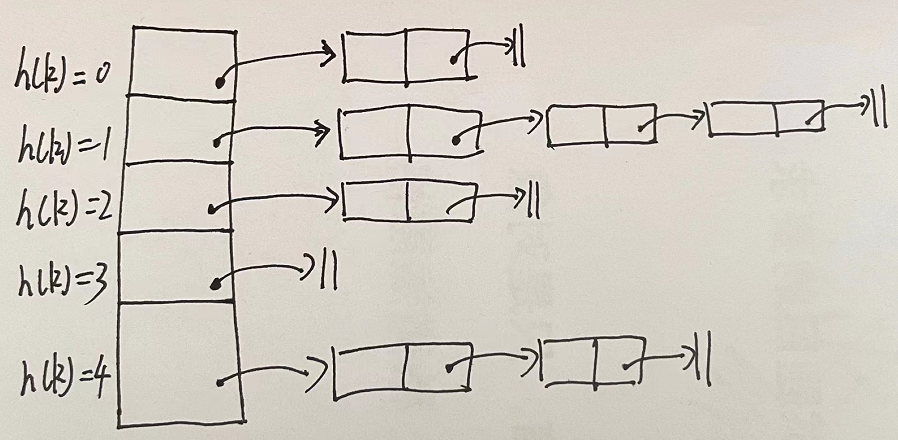 h(k)=0
h(k)=1
h(k)=2
h(k)=3
h(k)=4